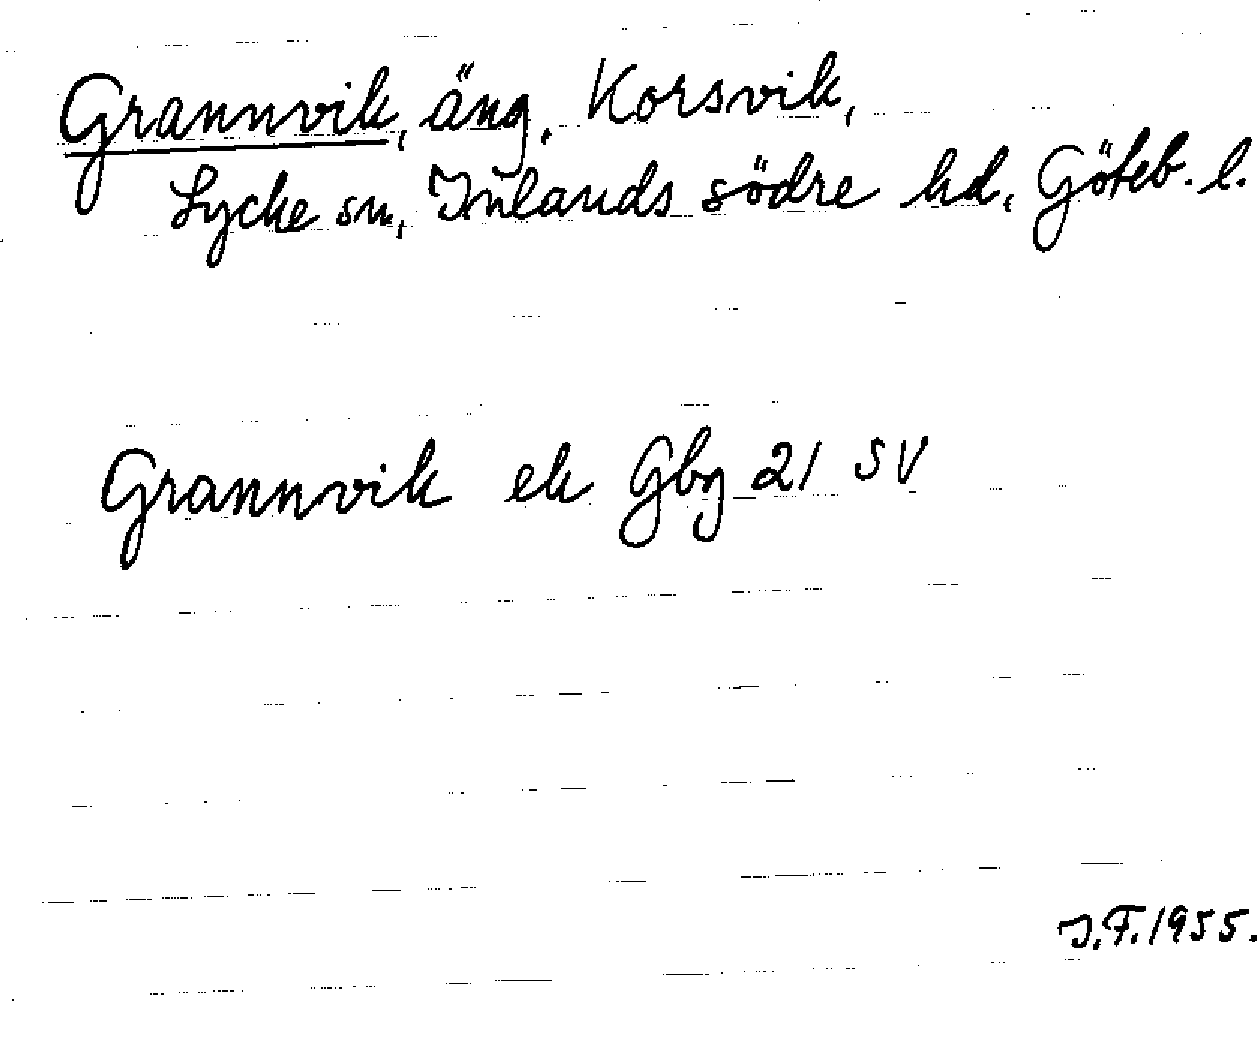 Grannvik, äng, Korsvik,
Lycke sn, Inlands södre hd, Göteb. l.
Grannvik ek Gbg 21 SV
I.F. 1955.